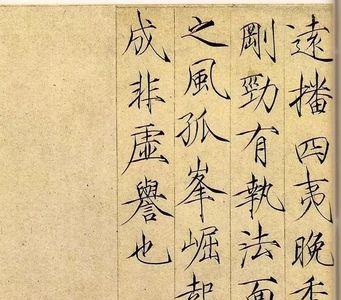 遠播四夷晚
剛勁有執法面
之風孤峯崛起
成非虛譽也